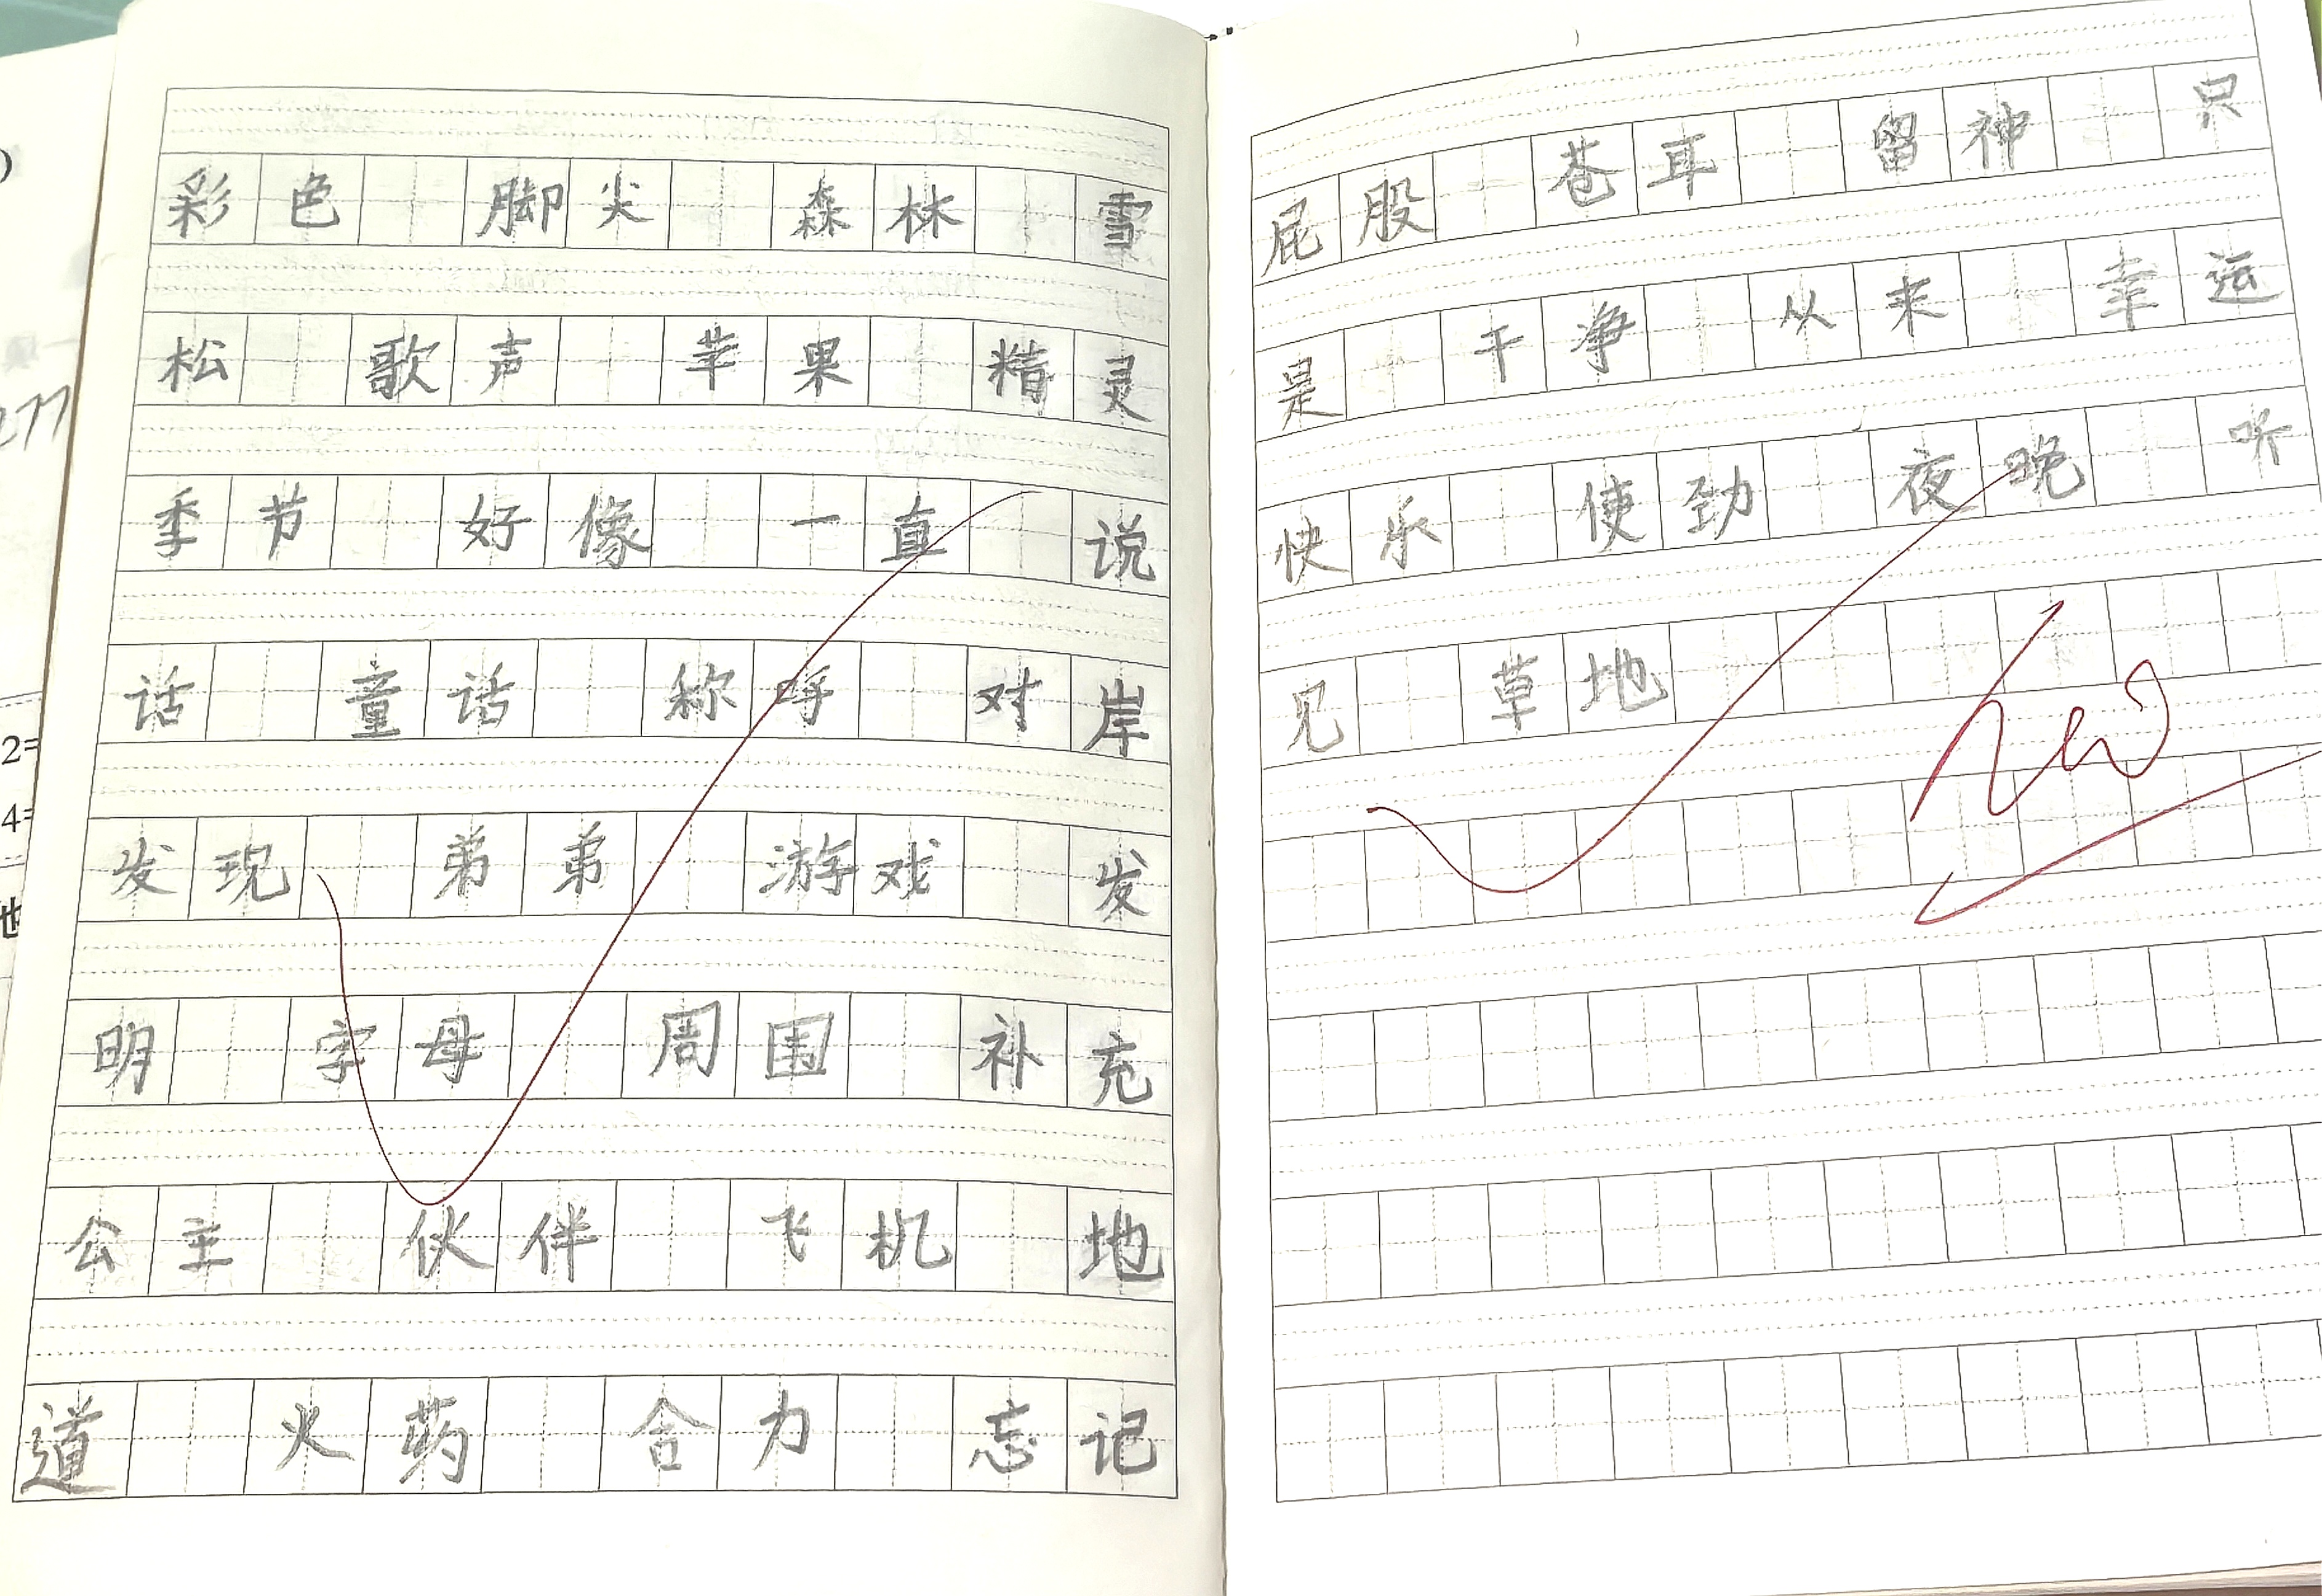 彩色 脚尖 森林 雪
松 歌声 苹果 精灵
季节 好像 一直 说
话 童话 称呼 对岸
发现 弟弟 游戏 发
明 字母 周围 补充
公主 伙伴 飞机 地
道 火药 合力 忘记
屁股 苍耳 留神 只
是 干净 从来 幸运
快乐 使劲 夜晚 听
见 草地
277
2=
4=